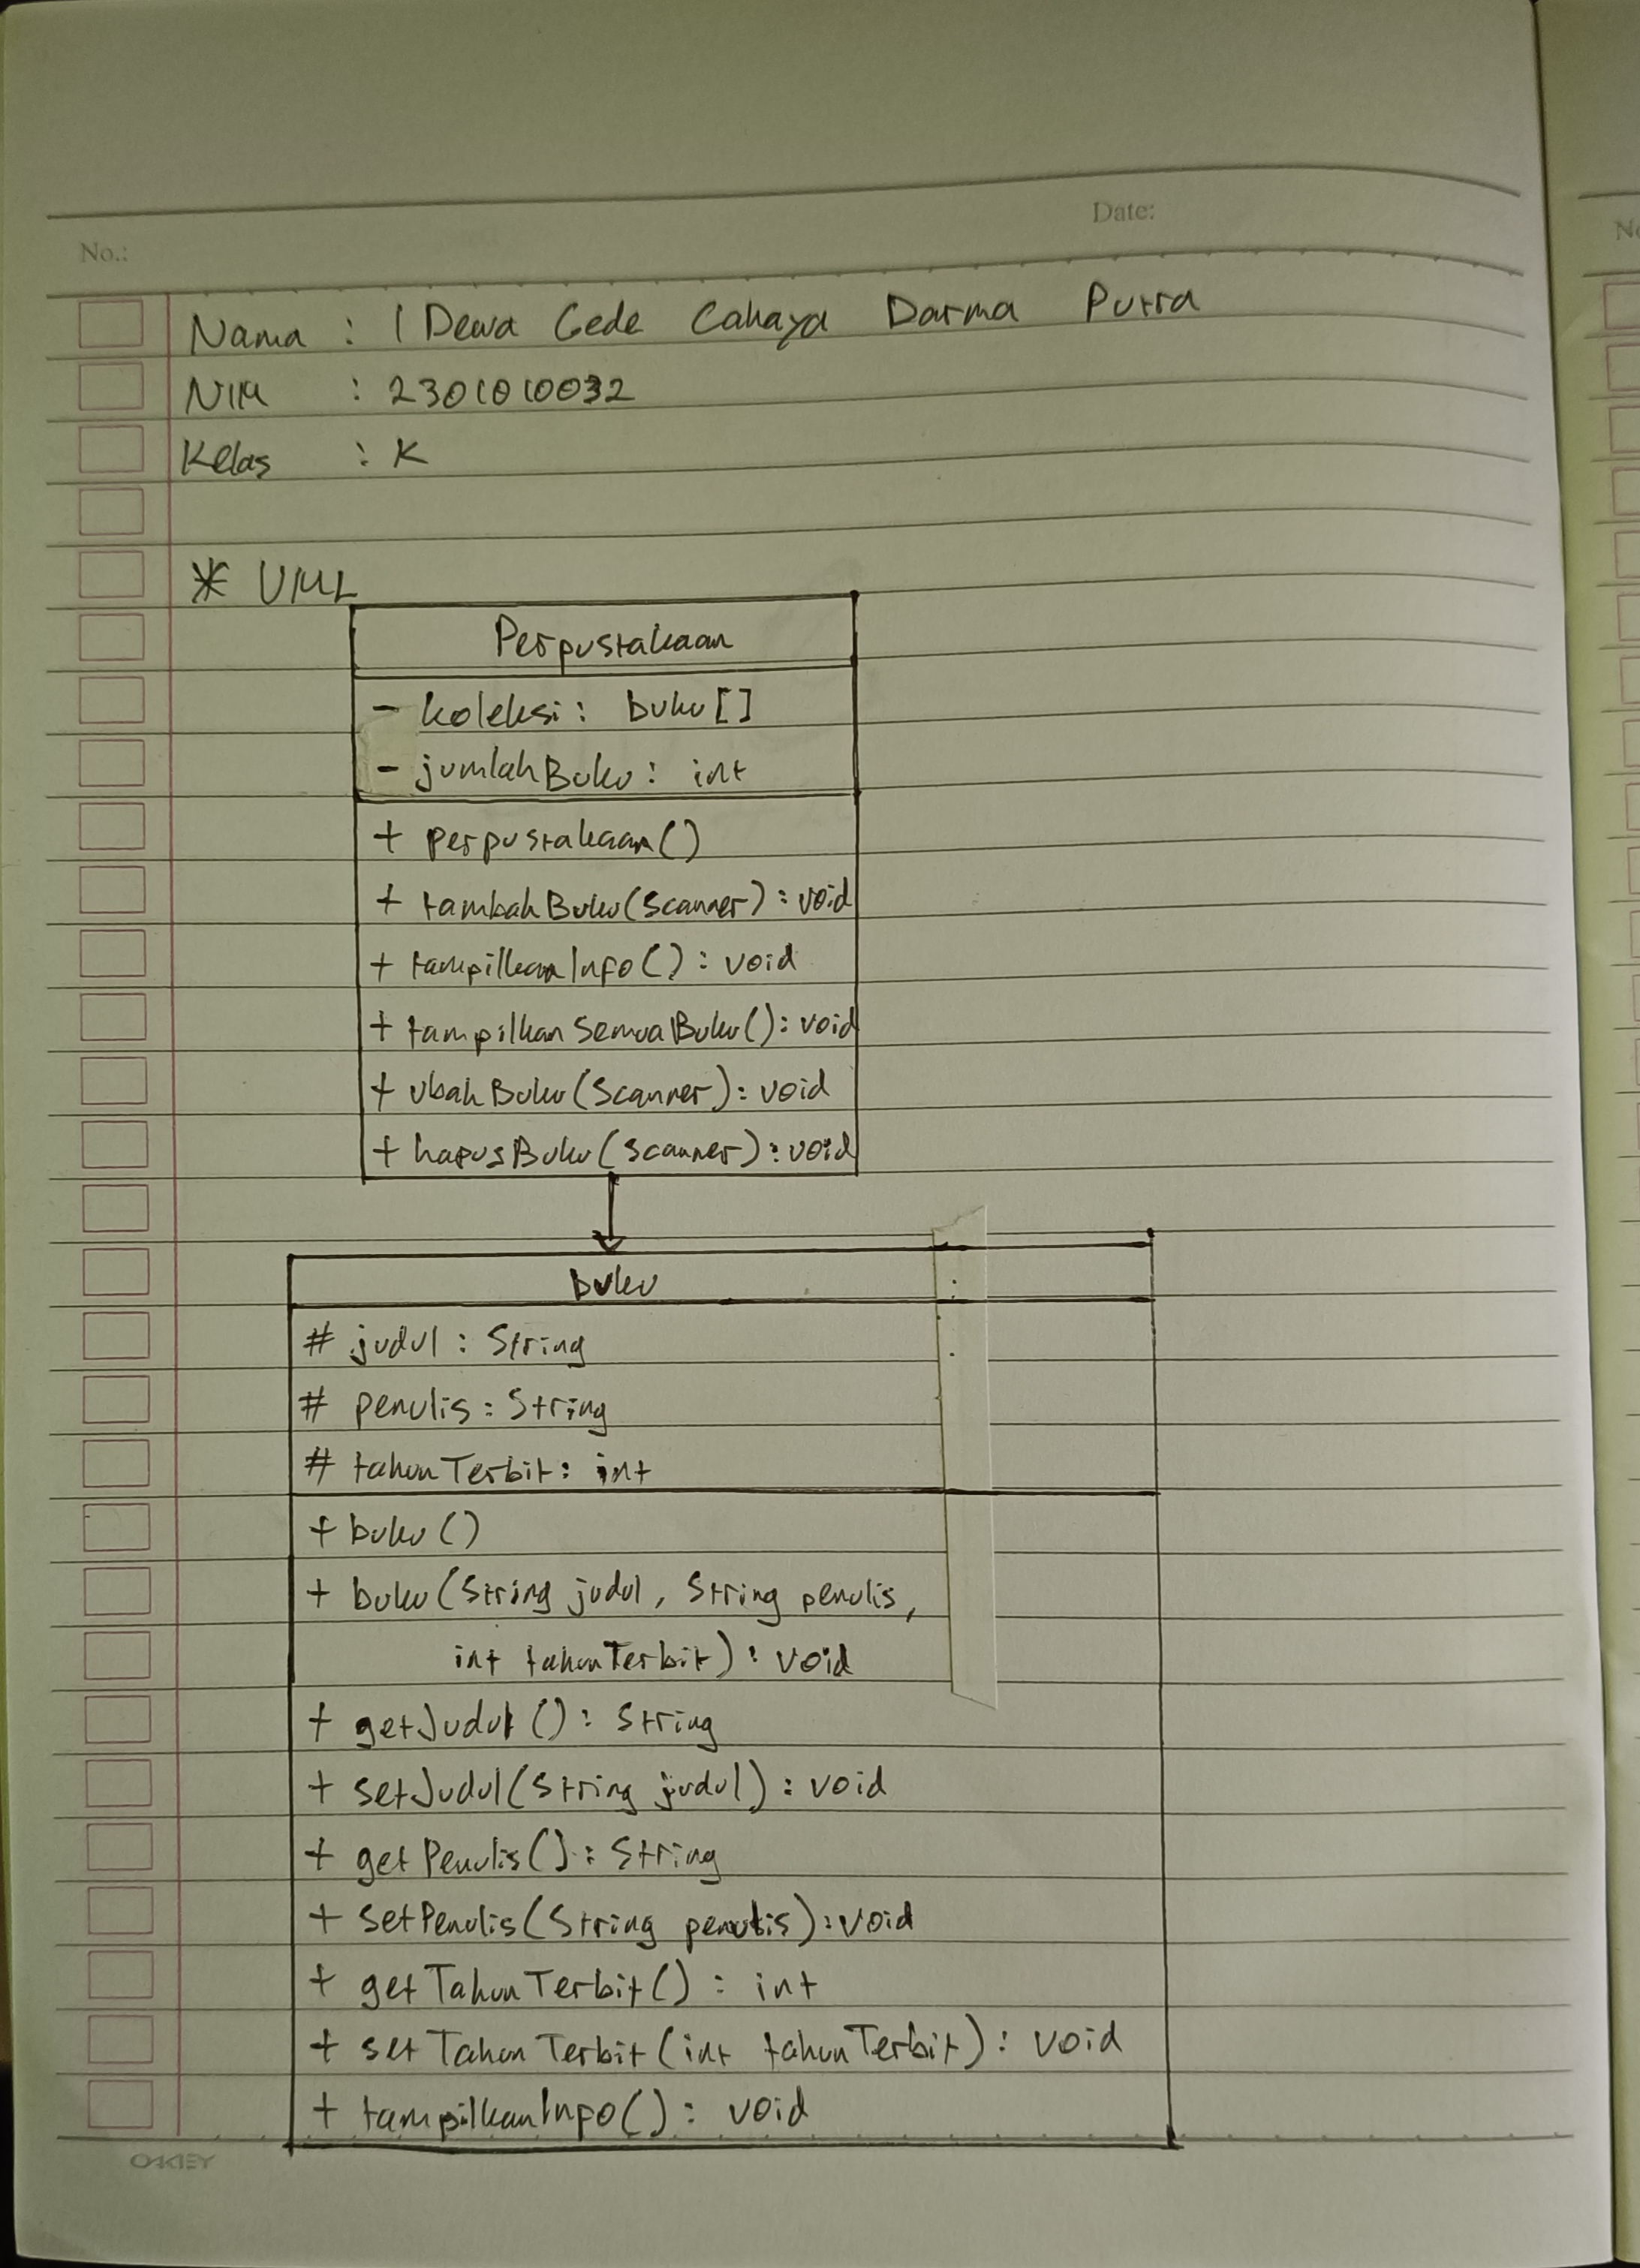 Date:
No.:
Nama : I Dewa Gede Cahaya Darma Putra
NIM : 2301010032
Kelas : K
* UML
Perpustakaan
- koleksi : buku[]
- jumlahBuku : int
+ perpustakaan()
+ tambahBuku(Scanner) : void
+ tampilkanInfo() : void
+ tampilkanSemuaBuku() : void
+ ubahBuku(Scanner) : void
+ hapusBuku(Scanner) : void
buku
# judul : String
# penulis : String
# tahunTerbit : int
+ buku()
+ buku(String judul, String penulis,
int tahunTerbit) : void
+ getJudul() : String
+ setJudul(String judul) : void
+ getPenulis() : String
+ setPenulis(String penulis) : void
+ getTahunTerbit() : int
+ setTahunTerbit(int tahunTerbit) : void
+ tampilkanInfo() : void
OAKLEY